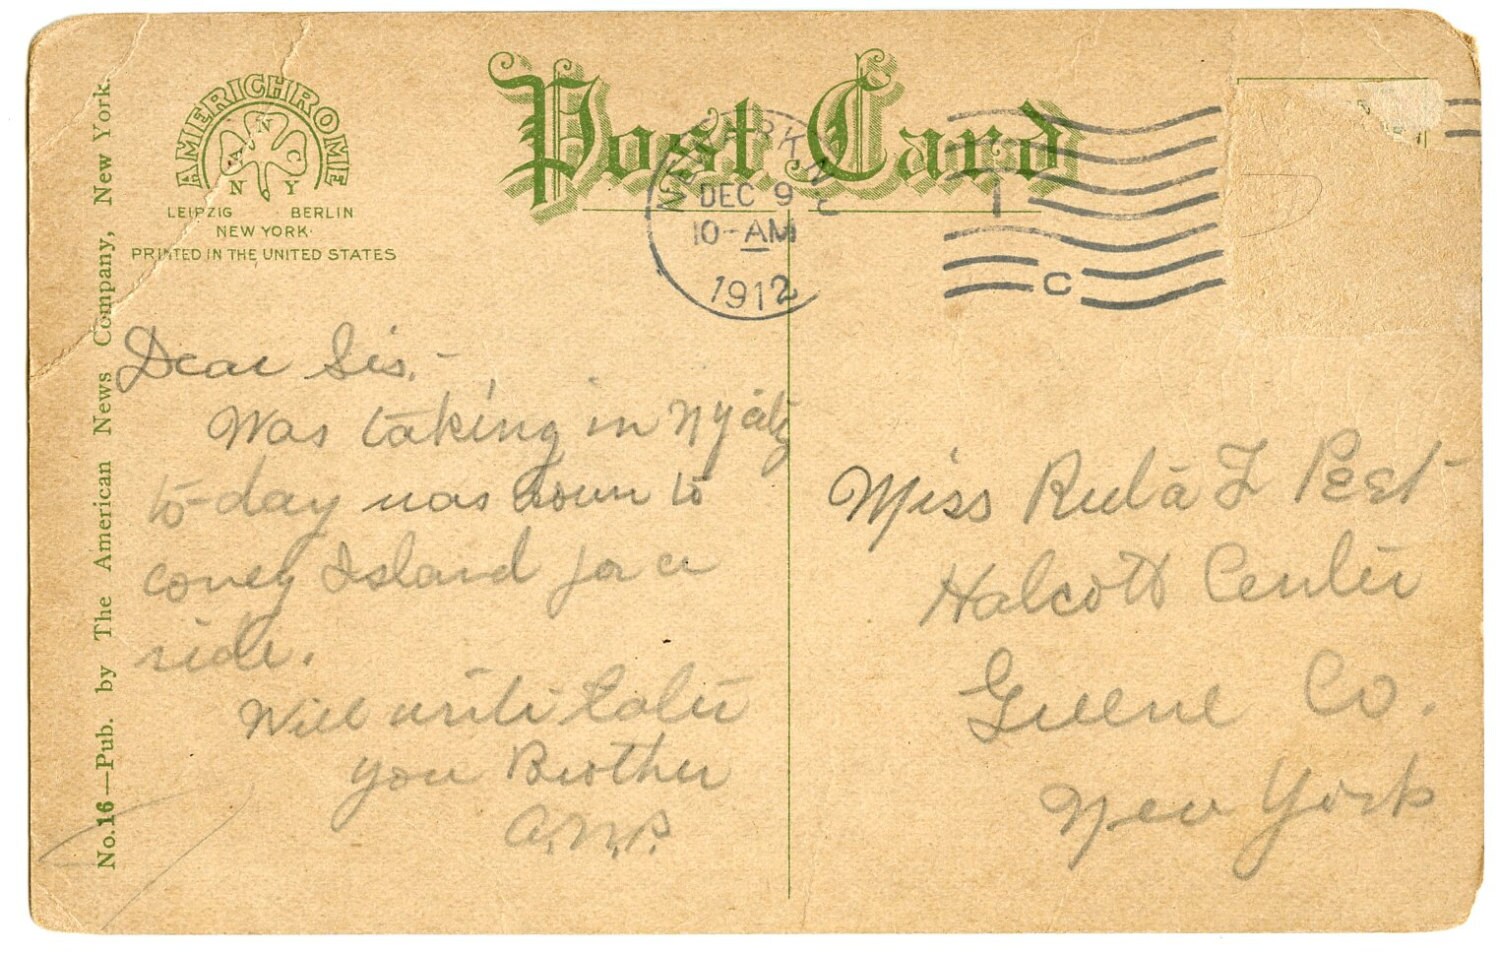 AMERICHROME
A N C
N Y
LEIPZIG BERLIN
NEW YORK
PRINTED IN THE UNITED STATES
Post Card
NEWARK, N.J.
DEC 9
10-AM
1912
1
C
No.16—Pub. by The American News Company, New York.
Dear Sis.-
Was taking in N Y city
to-day was down to
coney Island for a
ride.
Will write later
your Brother
A.N.P.
Miss Ruta F
Halcott Center
Greene Co.
New York